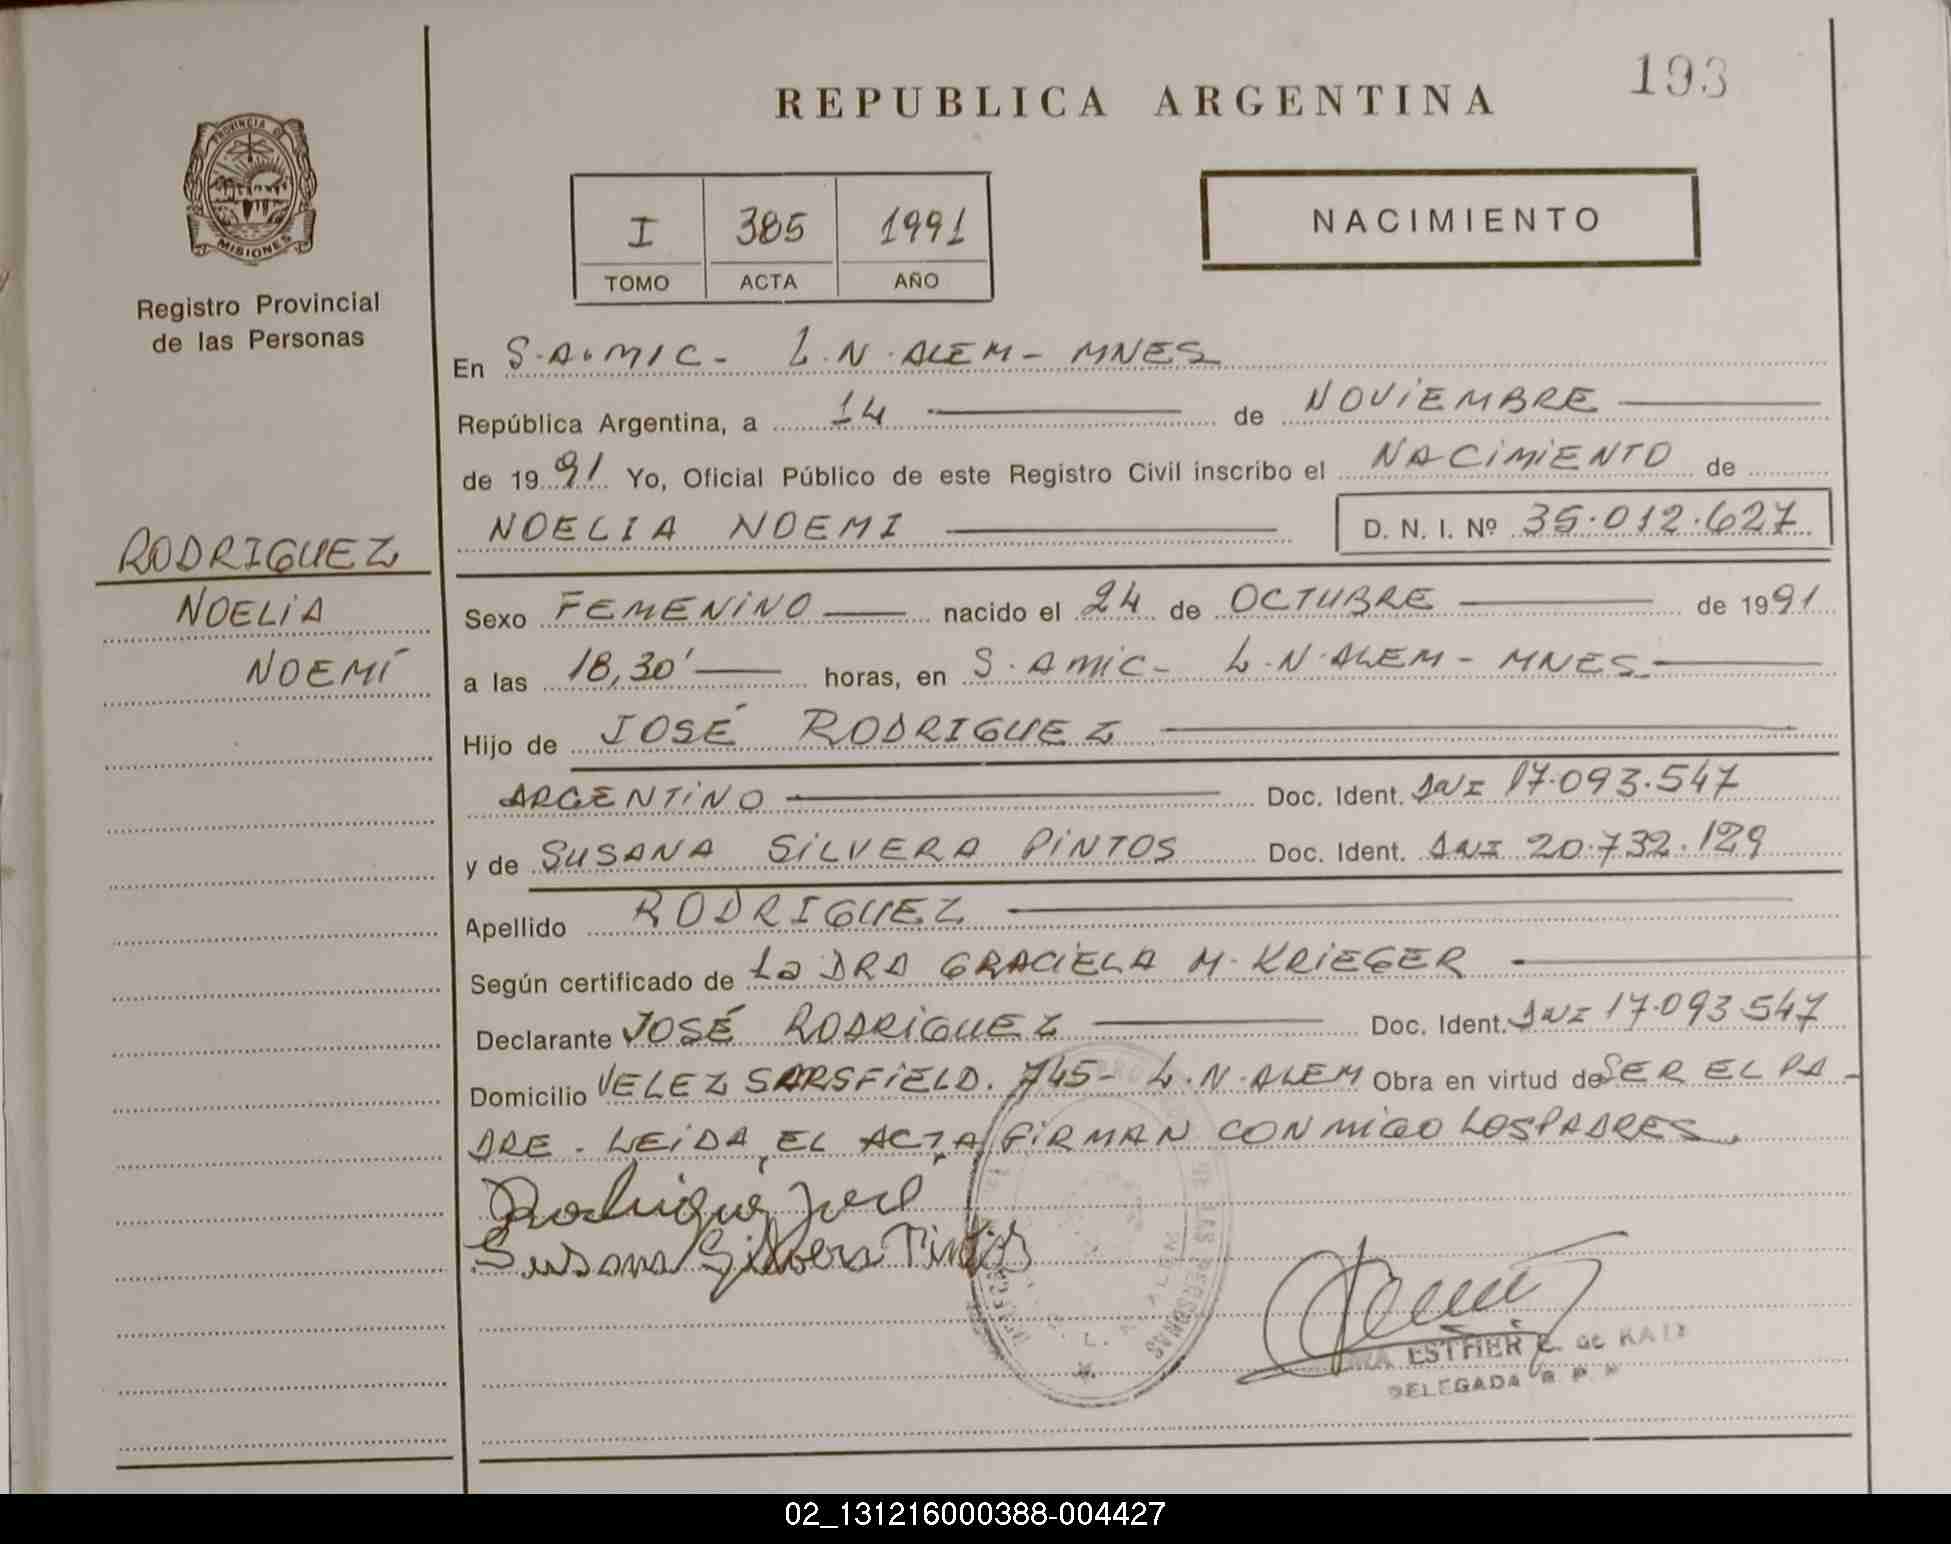 193
REPUBLICA ARGENTINA
PROVINCIA DE
MISIONES
Registro Provincial
de las Personas
I 385 1991
TOMO ACTA AÑO
NACIMIENTO
En S.A.MIC- L.N.ALEM- MNES
República Argentina, a 14 de NOVIEMBRE
de 1991 Yo, Oficial Público de este Registro Civil inscribo el NACIMIENTO de
NOELIA NOEMI D. N. I. Nº 35.012.627
RODRIGUEZ
NOELIA
NOEMÍ
Sexo FEMENINO nacido el 24 de OCTUBRE de 1991
a las 18,30' horas, en S.AMIC- L.N.ALEM- MNES-
Hijo de JOSÉ RODRIGUEZ
ARGENTINO Doc. Ident. DNI 17.093.547
y de SUSANA SILVERA PINTOS Doc. Ident. DNI 20.732.129
Apellido RODRIGUEZ
Según certificado de La DRA GRACIELA M. KRIEGER
Declarante JOSÉ RODRIGUEZ Doc. Ident. DNI 17.093.547
Domicilio VELEZ SARSFIELD. 745- L.N.ALEM Obra en virtud de SER EL PA-
DRE. LEIDA EL ACTA, FIRMAN CONMIGO LOS PADRES.
Rodriguez José
Susana Silvera Pintos
ESTHER E. de KATZ
DELEGADA R. P. P.
02_131216000388-004427